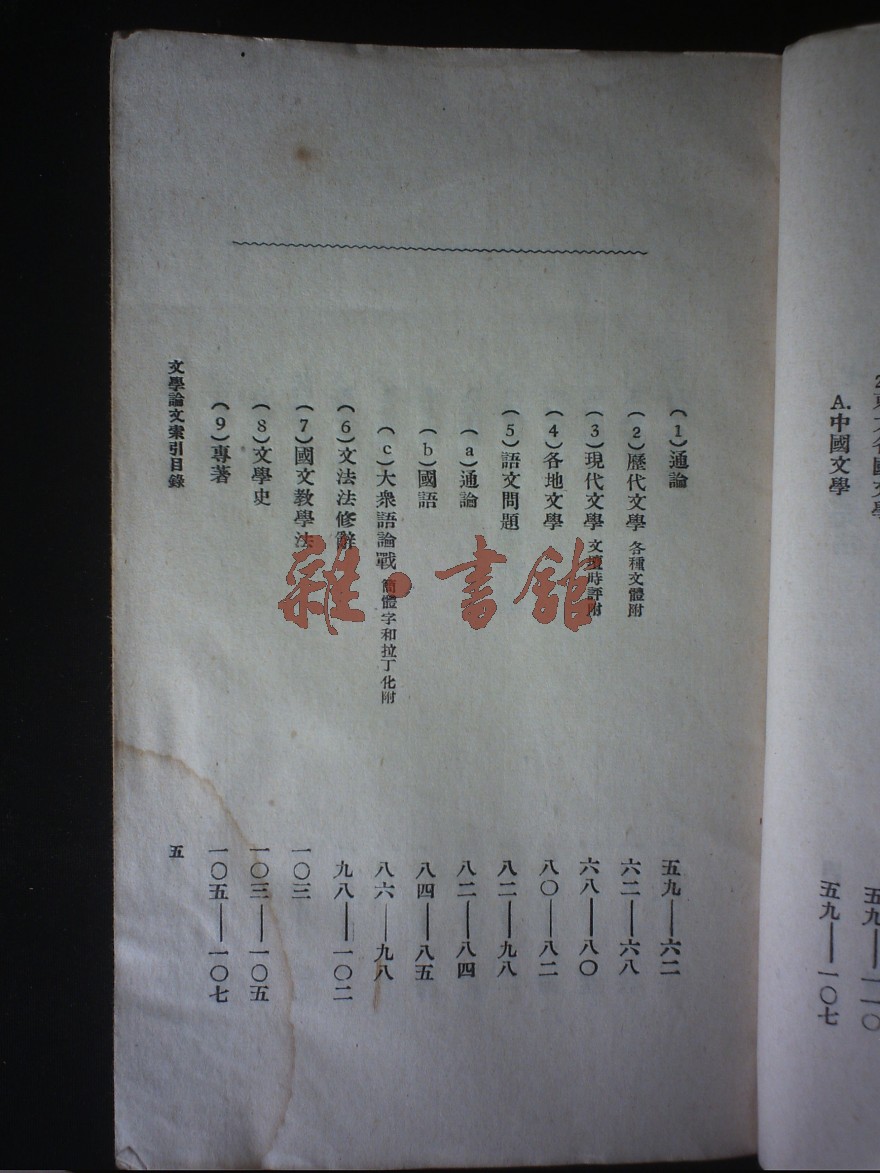 東方各國文學
五九——一一〇
A.中國文學
五九——一〇七
(1)通論
五九——六二
(2)歷代文學 各種文體附
六二——六八
(3)現代文學 文壇時評附
六八——八〇
(4)各地文學
八〇——八二
(5)語文問題
八二——九八
(a)通論
八二——八四
(b)國語
八四——八五
(c)大衆語論戰 簡體字和拉丁化附
八六——九八
(6)文法法修辭
九八——一〇二
(7)國文教學法
一〇三
(8)文學史
一〇三——一〇五
(9)專著
一〇五——一〇七
文學論文索引目錄
五
雜·書館